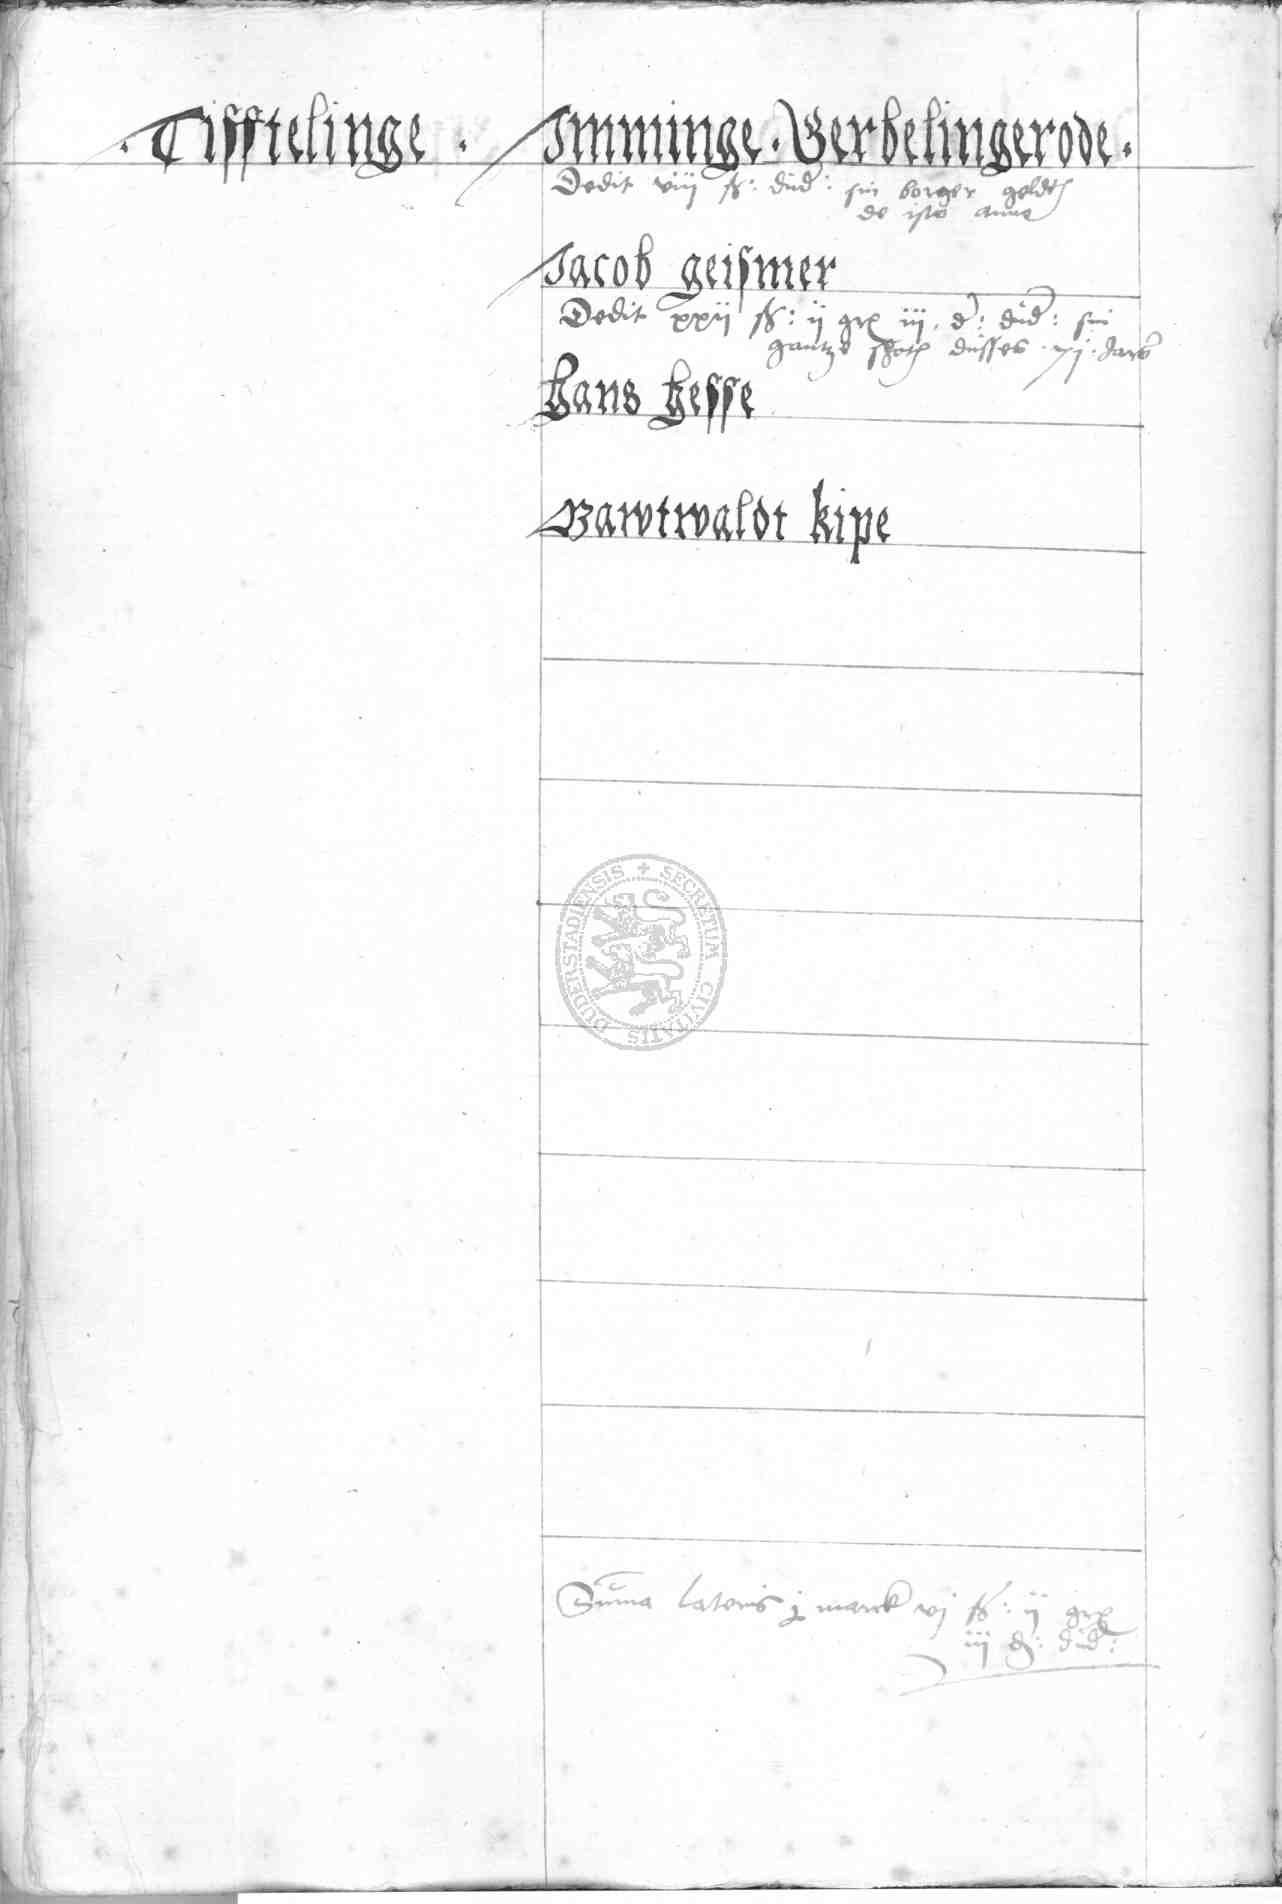 . Tisstelinge . Imminge . Gerbelingerode .
Dedit viij ß : dud : sin borger geldt
de isto anno
Jacob geismer
Dedit xxij ß : ij gr iij d : dud : sin
gantze schoth dusses Jars
Hans Hesse
Bawtwaldt kipe
SECRETUM CIVITATIS DUDERSTADIENSIS
Suma lateris j marck vj ß : ij gr
iij d : dud :